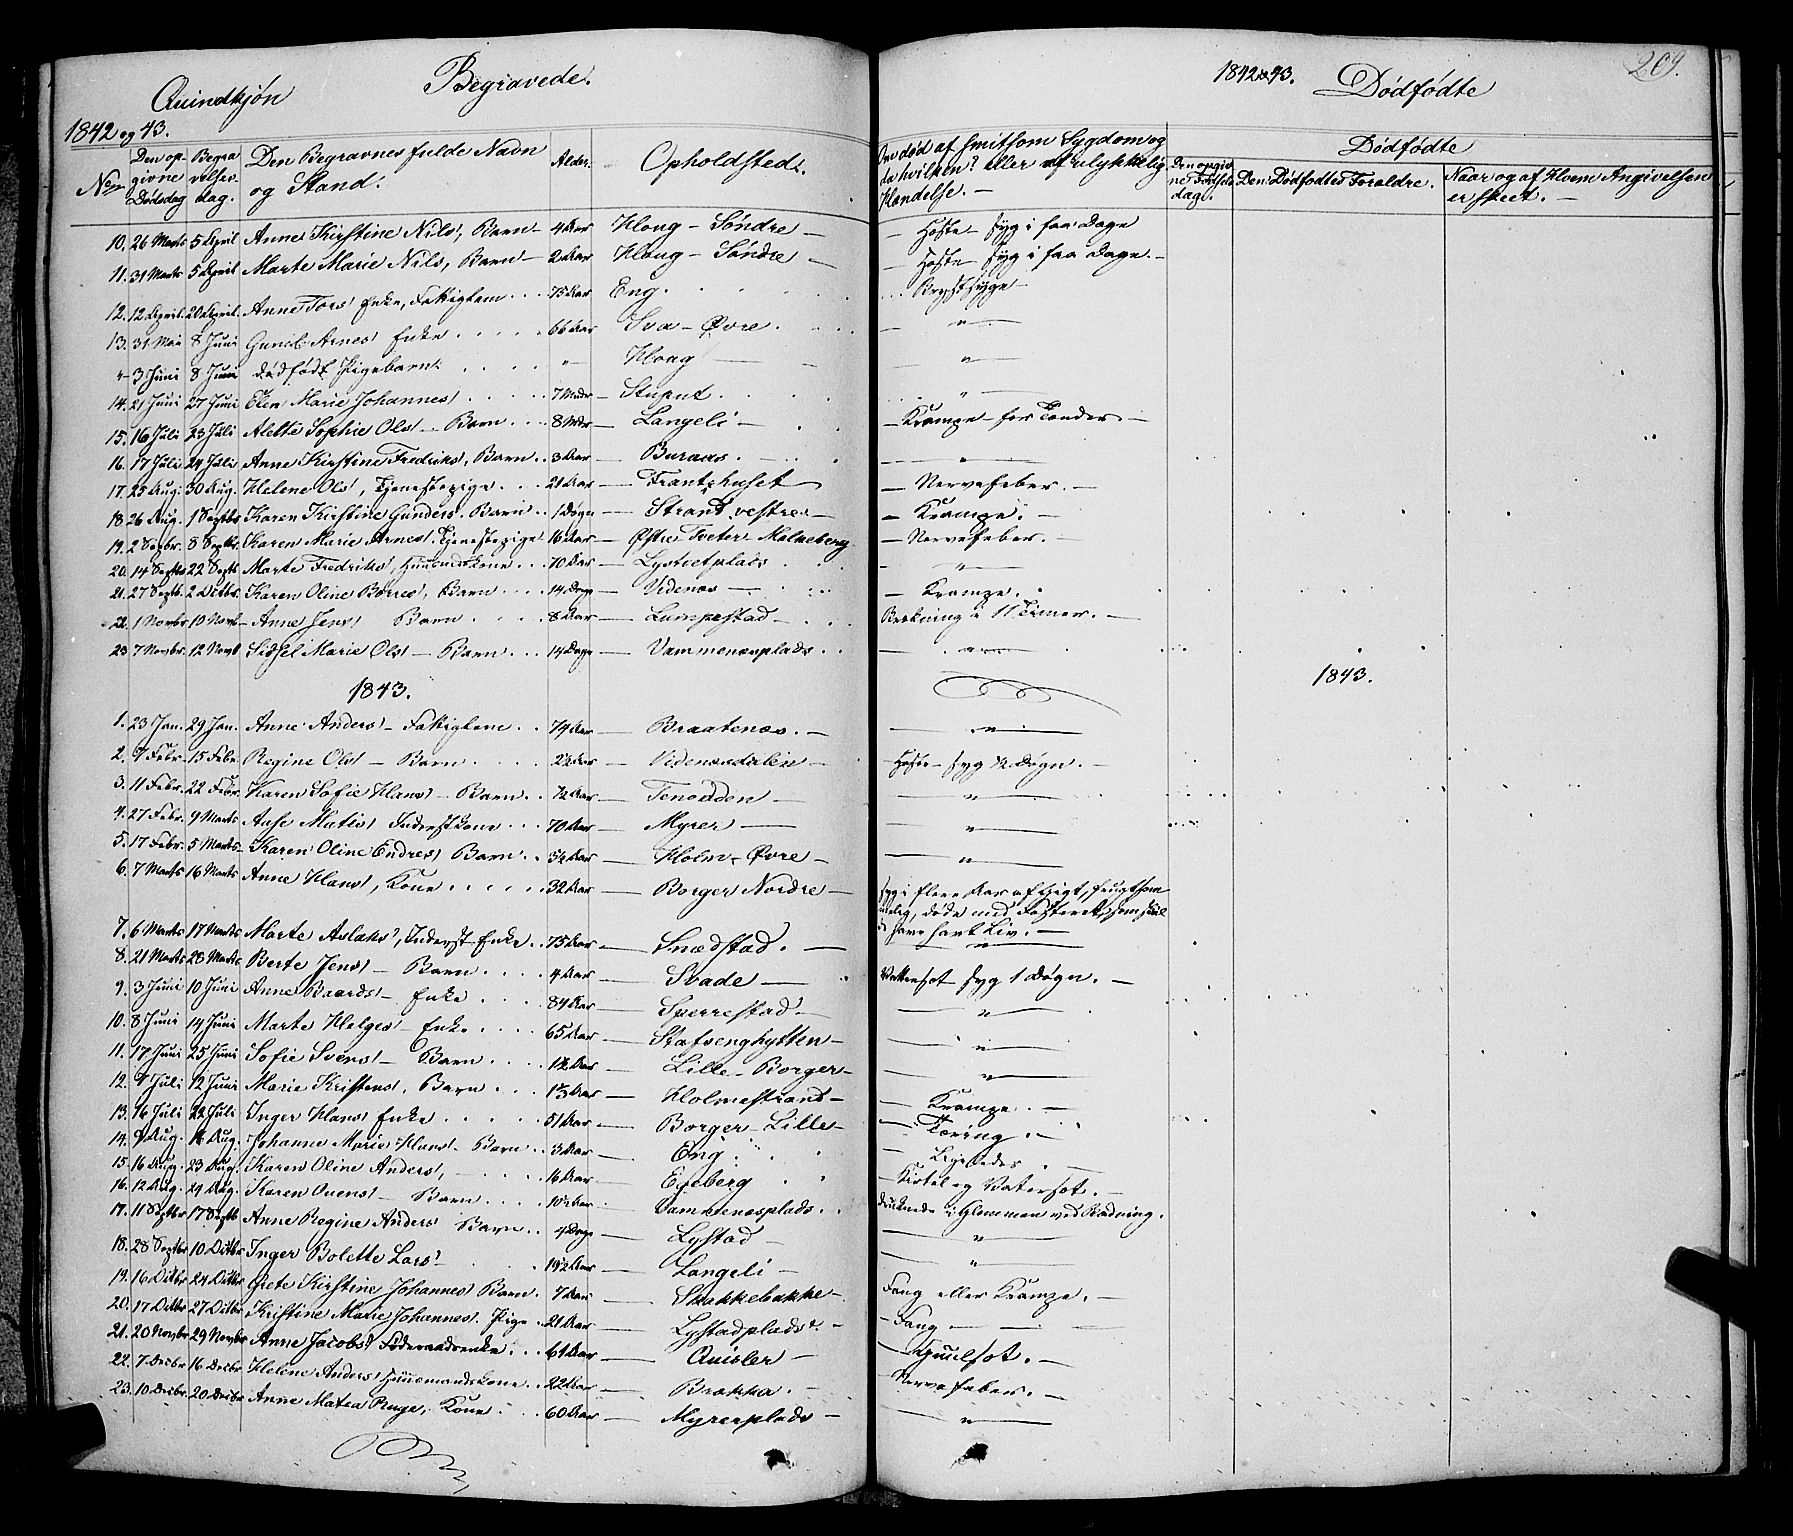 Qvindkjøn Begravede.
1842 og 43.
No
Den opgivne Dødsdag
Begravelsesdag.
Den Begravnes fulde Navn og Stand.
Alder.
Opholdsted.
10. 26 Marts 5 April Anne Kirstine Nils, Barn 4 Aar Houg - Søndre
11. 31 Marts 5 April Marte Marie Nils, Barn 2 Aar Houg - Søndre
12. 12 April 20 April Anne Tors Enke, Fattiglem 75 Aar Eng
13. 31 Mai 8 Juni Gunil Arnes Enke 66 Aar Sva - Øvre
" 3 Juni 8 Juni dødfødt Pigebarn " Houg
14. 21 Juni 27 Juni Elen Marie Johannes 7 Mdr Stuput
15. 16 Juli 23 Juli Alette Sophie Ols - Barn 8 Mdr Langeli
16. 17 Juli 24 Juli Anne Kirstine Fredriks, Barn 3 Aar Buraas
17. 25 Aug. 30 Aug. Helene Ols, Tjenestepige 21 Aar Frantzhuset
18. 26 Aug. 1 Septbr Karen Kirstine Gunders. Barn 1 Døgn Strand vestre
19. 2 Septbr. 8 Septbr. Karen Marie Arnes. Tjenestepige 16 Aar Østre Tveter
20. 14 Septbr 22 Septb Marte Fredriks, Huusmdskone 70 Aar
21. 27 Septb. 2 Octbr. Karen Oline Børres, Barn 14 Dage Videnæs
22. 1 Novbr 10 Novb Anne Jens Barn 8 Aar Lumpestad
23 7 Novbr. 12 Novb Sidsel Marie Ols - Barn 14 Dage Vammenæsplads
1843.
1. 23 Jan. 29 Jan. Anne Anders - Fattiglem 74 Aar Braatenæs
2. 7 Febr. 15 Febr. Regine Ols - Barn Aar Videnæsdalen
3. 11 Febr. 22 Febr. Karen Sofie Hans - Barn ½ Aar Tenodden
4. 27 Febr. 9 Marts Aase Matis Inderstkone 70 Aar Myrer
5. 17 Febr. 5 Marts Karen Oline Endres Barn Aar Holm - Øvre
6. 7 Marts 16 Marts Anne Hans, Kone 32 Aar Borger Nordre
7. 6 Marts 17 Marts Marte Aslaks, Inderst Enke 75 Aar Snædstad
8. 21 Marts 28 Marts Berte Jens - Barn 4 Aar Svade
9. 3 Juni 10 Juni Anne Baards - Enke 84 Aar Sperrestad
10. 8 Juni 14 Juni Marte Helges - Enke 65 Aar Stafsenghytten
11. 17 Juni 25 Juni Sofie Svens - Barn 1½ Aar Lille - Borger
12. 7 Juli 12 Juni Marie Kristens, Barn Aar Holmestrand
13. 16 Juli 22 Juli Inger Hans Enke 51 Aar Borger Lille
14. 9 Aug. Aug. Johanne Marie Hans. Barn 3 Aar Eng
15. 16 Aug. 23 Aug. Karen Oline Anders, 16 Aar Egeberg
16. 12 Aug. 29 Aug. Karen Ouens - Barn 10½ Aar Vammenæsplads
17. 11 Septbr 17 Septb Anne Regine Anders Barn 4 Dage Lystad
18. 28 Septbr 10 Octbr Inger Bolette Lars 19½ Aar Langeli
19. 16 Octbr 24 Octbr Grete Kirstine Johannes Barn 7 Aar Stokkebakke
20. 17 Octbr 27 Octbr Kristine Marie Johannes. Pige 21 Aar Lystadplads
21. 20 Novbr 29 Novbr Anne Jacobs Føderaadsenke 61 Aar Quisler
22. 7 Decbr 16 Decbr Helene Anders Huusmandskone 22 Aar Brakka
23. 10 Decbr 20 Decbr Anne Matea Ruge, Kone 60 Aar Myrerplads
1842 & 43. Dødfødte 209.
Om død af smitsom Sygdom og da hvilken? eller af ulykkelig Hændelse.
Dødfødte
Den opgivne Fødselsdag.
Den Dødfødtes Forældre.
Naar og af Hvem Angivelsen er skeet.
Hoste - syg i faa Dage
Hoste - syg i faa Dage
Brystsyge
"
"
"
Krampe for Tænder
"
Nervefeber.
Krampe.
Nervefeber.
"
Krampe.
Brækning i 11 Timer.
"
1843.
"
Hoste - syg ½ Døgn.
"
"
"
syg i flere Aar af Gigt, frugtsommelig, døde med Fosteret, som
have havt Liv.
"
Vattersot syg 1 Døgn.
"
"
"
Krampe.
Tæring.
Ligeledes
Kirtel og Vatersot.
druknede i Glommen ved Badning.
"
"
Fang eller Krampe.
Fang
Guulsot.
Nervefeber.
"